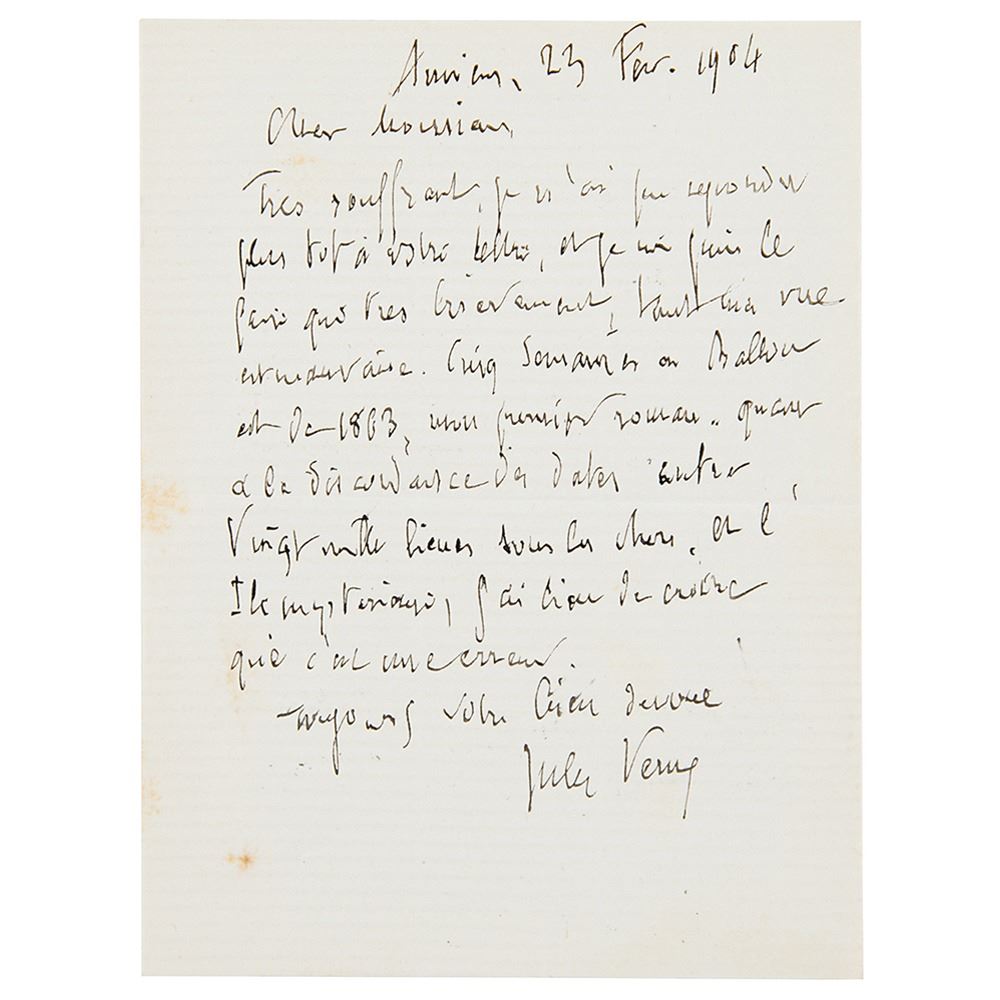 Amiens, 23 Fev. 1904
Cher Monsieur,
Tres souffrant, je n'ai pu repondre
plus tot à votre lettre, et je ne puis le
faire que tres brievement, tant ma vue
est mauvaise. Cinq Semaines en Ballon
est de 1863, mon premier roman. quant
a la discordance des dates entre
Vingt mille lieues sous les Mers, et l'
Ile mysterieuse, j'ai lieu de croire
que c'est une erreur.
Toujours votre bien devoué
Jules Verne